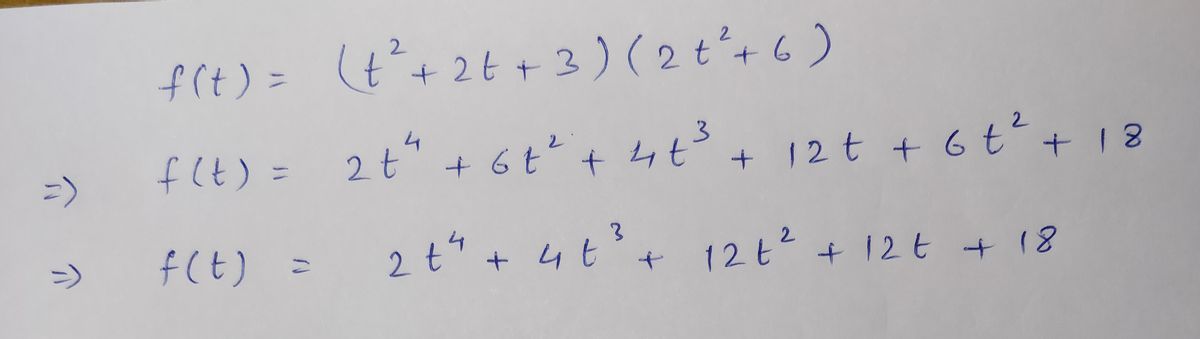 f(t) = (t² + 2t + 3)(2t² + 6)
=> f(t) = 2t⁴ + 6t² + 4t³ + 12t + 6t² + 18
=> f(t) = 2t⁴ + 4t³ + 12t² + 12t + 18